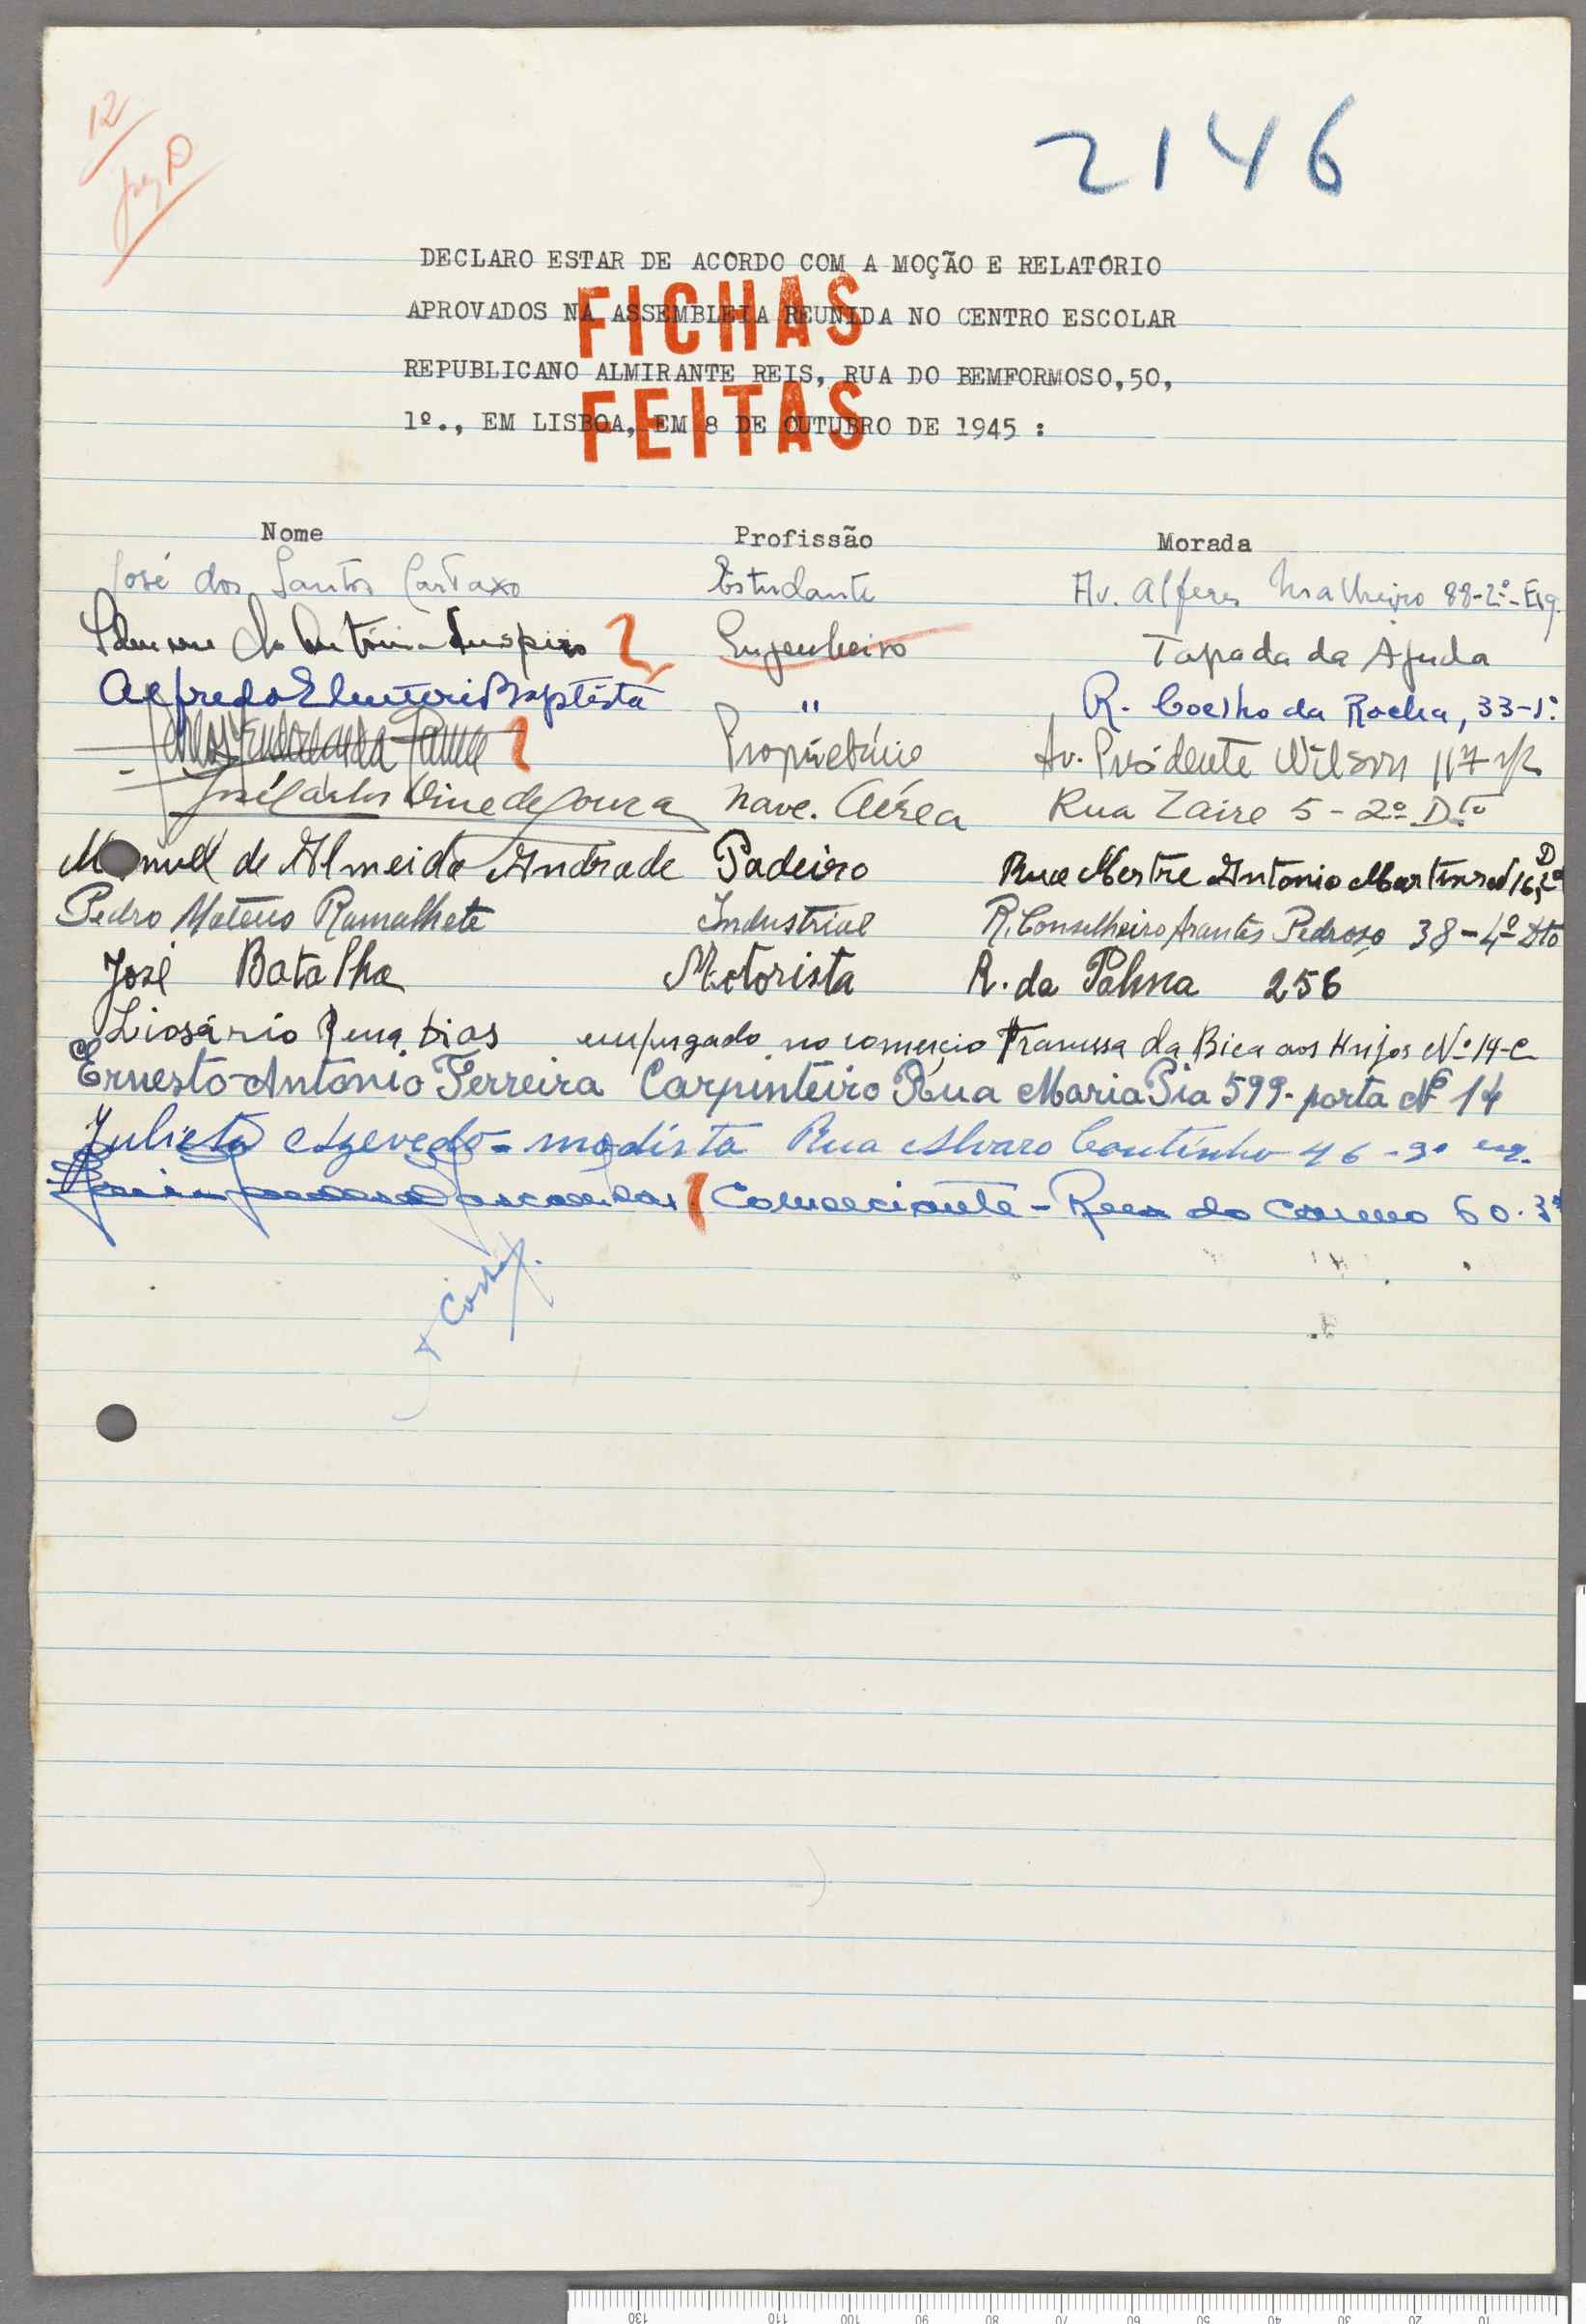 12
2146
DECLARO ESTAR DE ACORDO COM A MOÇÃO E RELATÓRIO
APROVADOS NA ASSEMBLEIA REUNIDA NO CENTRO ESCOLAR
REPUBLICANO ALMIRANTE REIS, RUA DO BEMFORMOSO,50,
1º., EM LISBOA, EM 8 DE OUTUBRO DE 1945 :
FICHAS
FEITAS
Nome Profissão Morada
José dos Santos Cartaxo Estudante Av. Alferes Malheiro 88-2º-Esq.
Engenheiro Tapada da Ajuda
Alfredo Eleuterio Baptista " R. Coelho da Rocha, 33-1º
Proprietário Av. Presidente Wilson 117 r/c
José Carlos de Souza Nave. Aérea Rua Zaire 5-2º Dto
Manuel de Almeida Andrade Padeiro Rua Mestre Antonio Martins
Pedro Mateus Ramalhete Industrial R. Conselheiro Arantes Pedroso 38-4º Dto
José Batalha Motorista R. da Palma 256
Pena Dias empregado no comercio Travessa da Bica aos Anjos Nº 14-C
Ernesto Antonio Ferreira Carpinteiro Rua Maria Pia 599-porta Nº 14
Julieta Azevedo - modista Rua Alvaro Coutinho 46-3º esq.
Comerciante - Rua do Carmo 60-3º